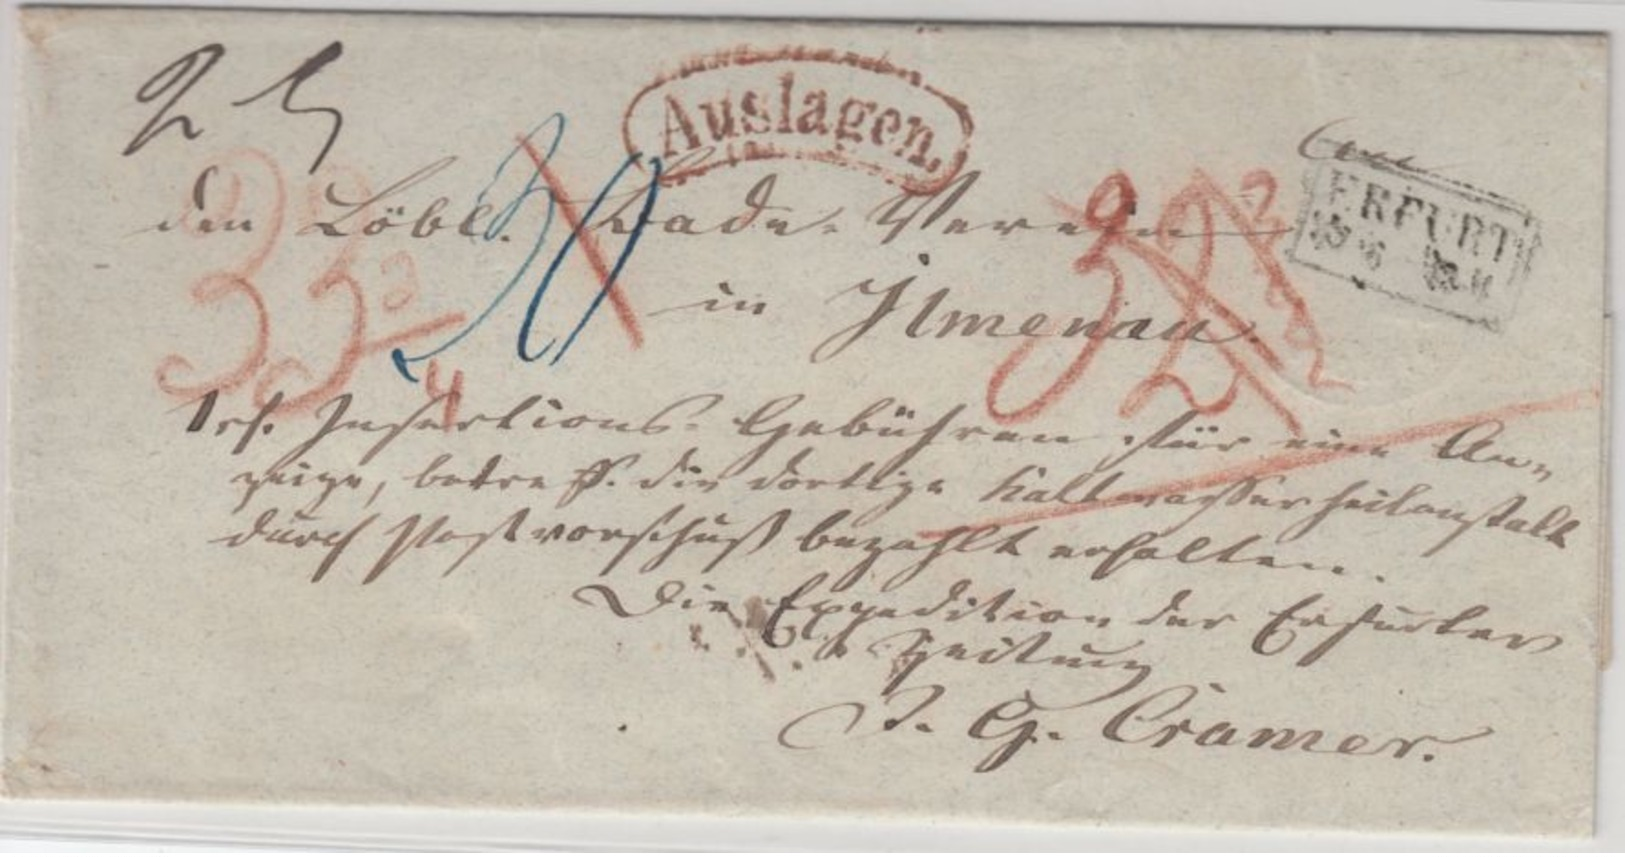 Auslagen.
ERFURT
den Löbl. Bade-Verein
in Ilmenau.
Insertions-Gebühren für eine An-
zeige, betreff. die dortige Kaltwasserheilanstalt
durch Postvorschuß bezahlt erhalten.
Die Expedition der Erfurter
Zeitung
J. G. Cramer.